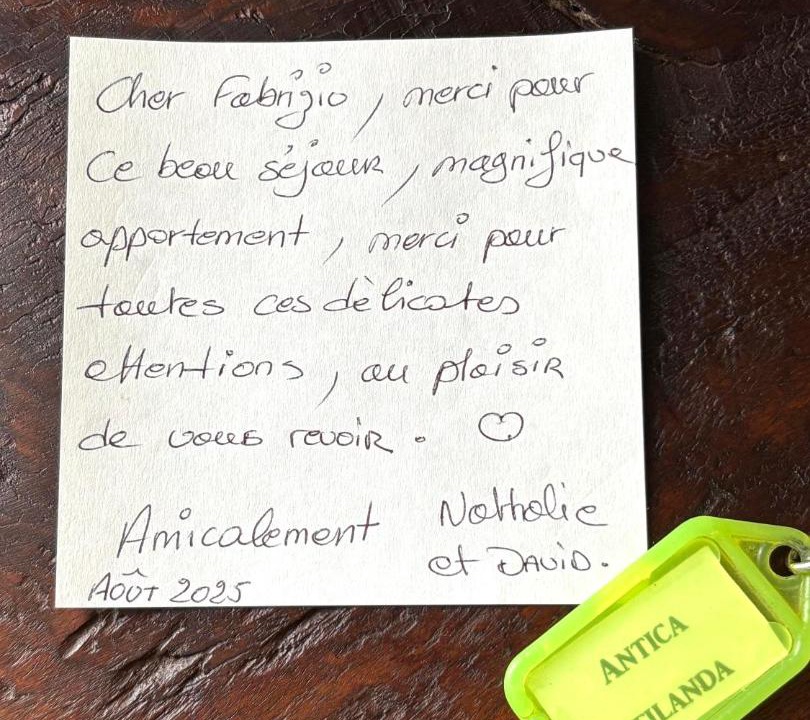 Cher Fabrizio, merci pour
Ce beau séjour, magnifique
appartement, merci pour
toutes ces dèlicates
attentions, au plaisir
de vous revoir. ♡
Amicalement Nathalie
et DAVID.
AOÛT 2025
ANTICA